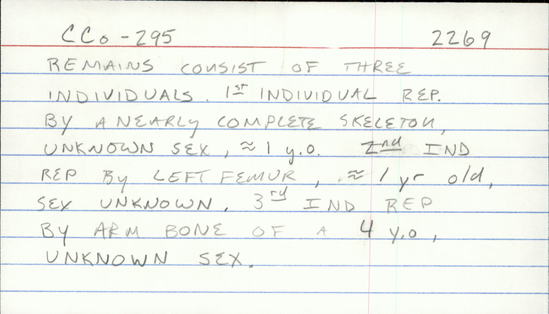 CCo-295 2269
REMAINS CONSIST OF THREE
INDIVIDUALS. 1ST INDIVIDUAL REP.
BY A NEARLY COMPLETE SKELETON,
UNKNOWN SEX, ≈ 1 y.o. 2nd IND
REP BY LEFT FEMUR, ≈ 1 yr old,
SEX UNKNOWN. 3rd IND REP
BY ARM BONE OF A 4 y.o,
UNKNOWN SEX.